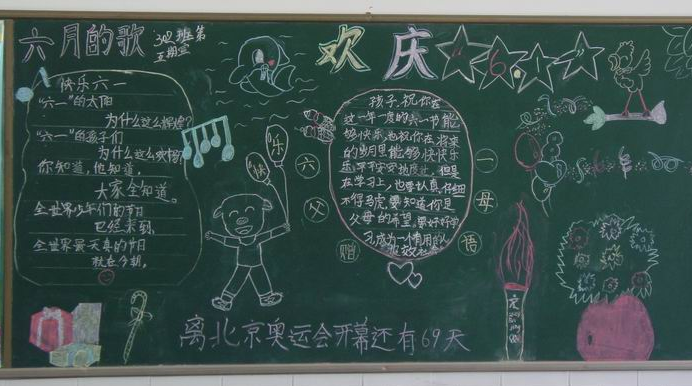 六月的歌
302班第
五期宣
欢庆"6.1"
快乐六一
"六一"的太阳
为什么这么辉煌?
"六一"的孩子们
为什么这么欢畅?
你知道,他知道,
大家全知道。
全世界少年们的节日
已经来到,
全世界最天真的节日
就在今朝。
快乐
六一
父母
赠语
孩子,祝你在
这一年一度的六一节能
够快乐,也祝你在将来
的岁月里能够快快乐
乐,平平安安地度过。但是
在学习上,也要认真仔细
不得马虎,要知道你是
父母的希望,要好好学
习,成为一个有用的人
离北京奥运会开幕还有69天